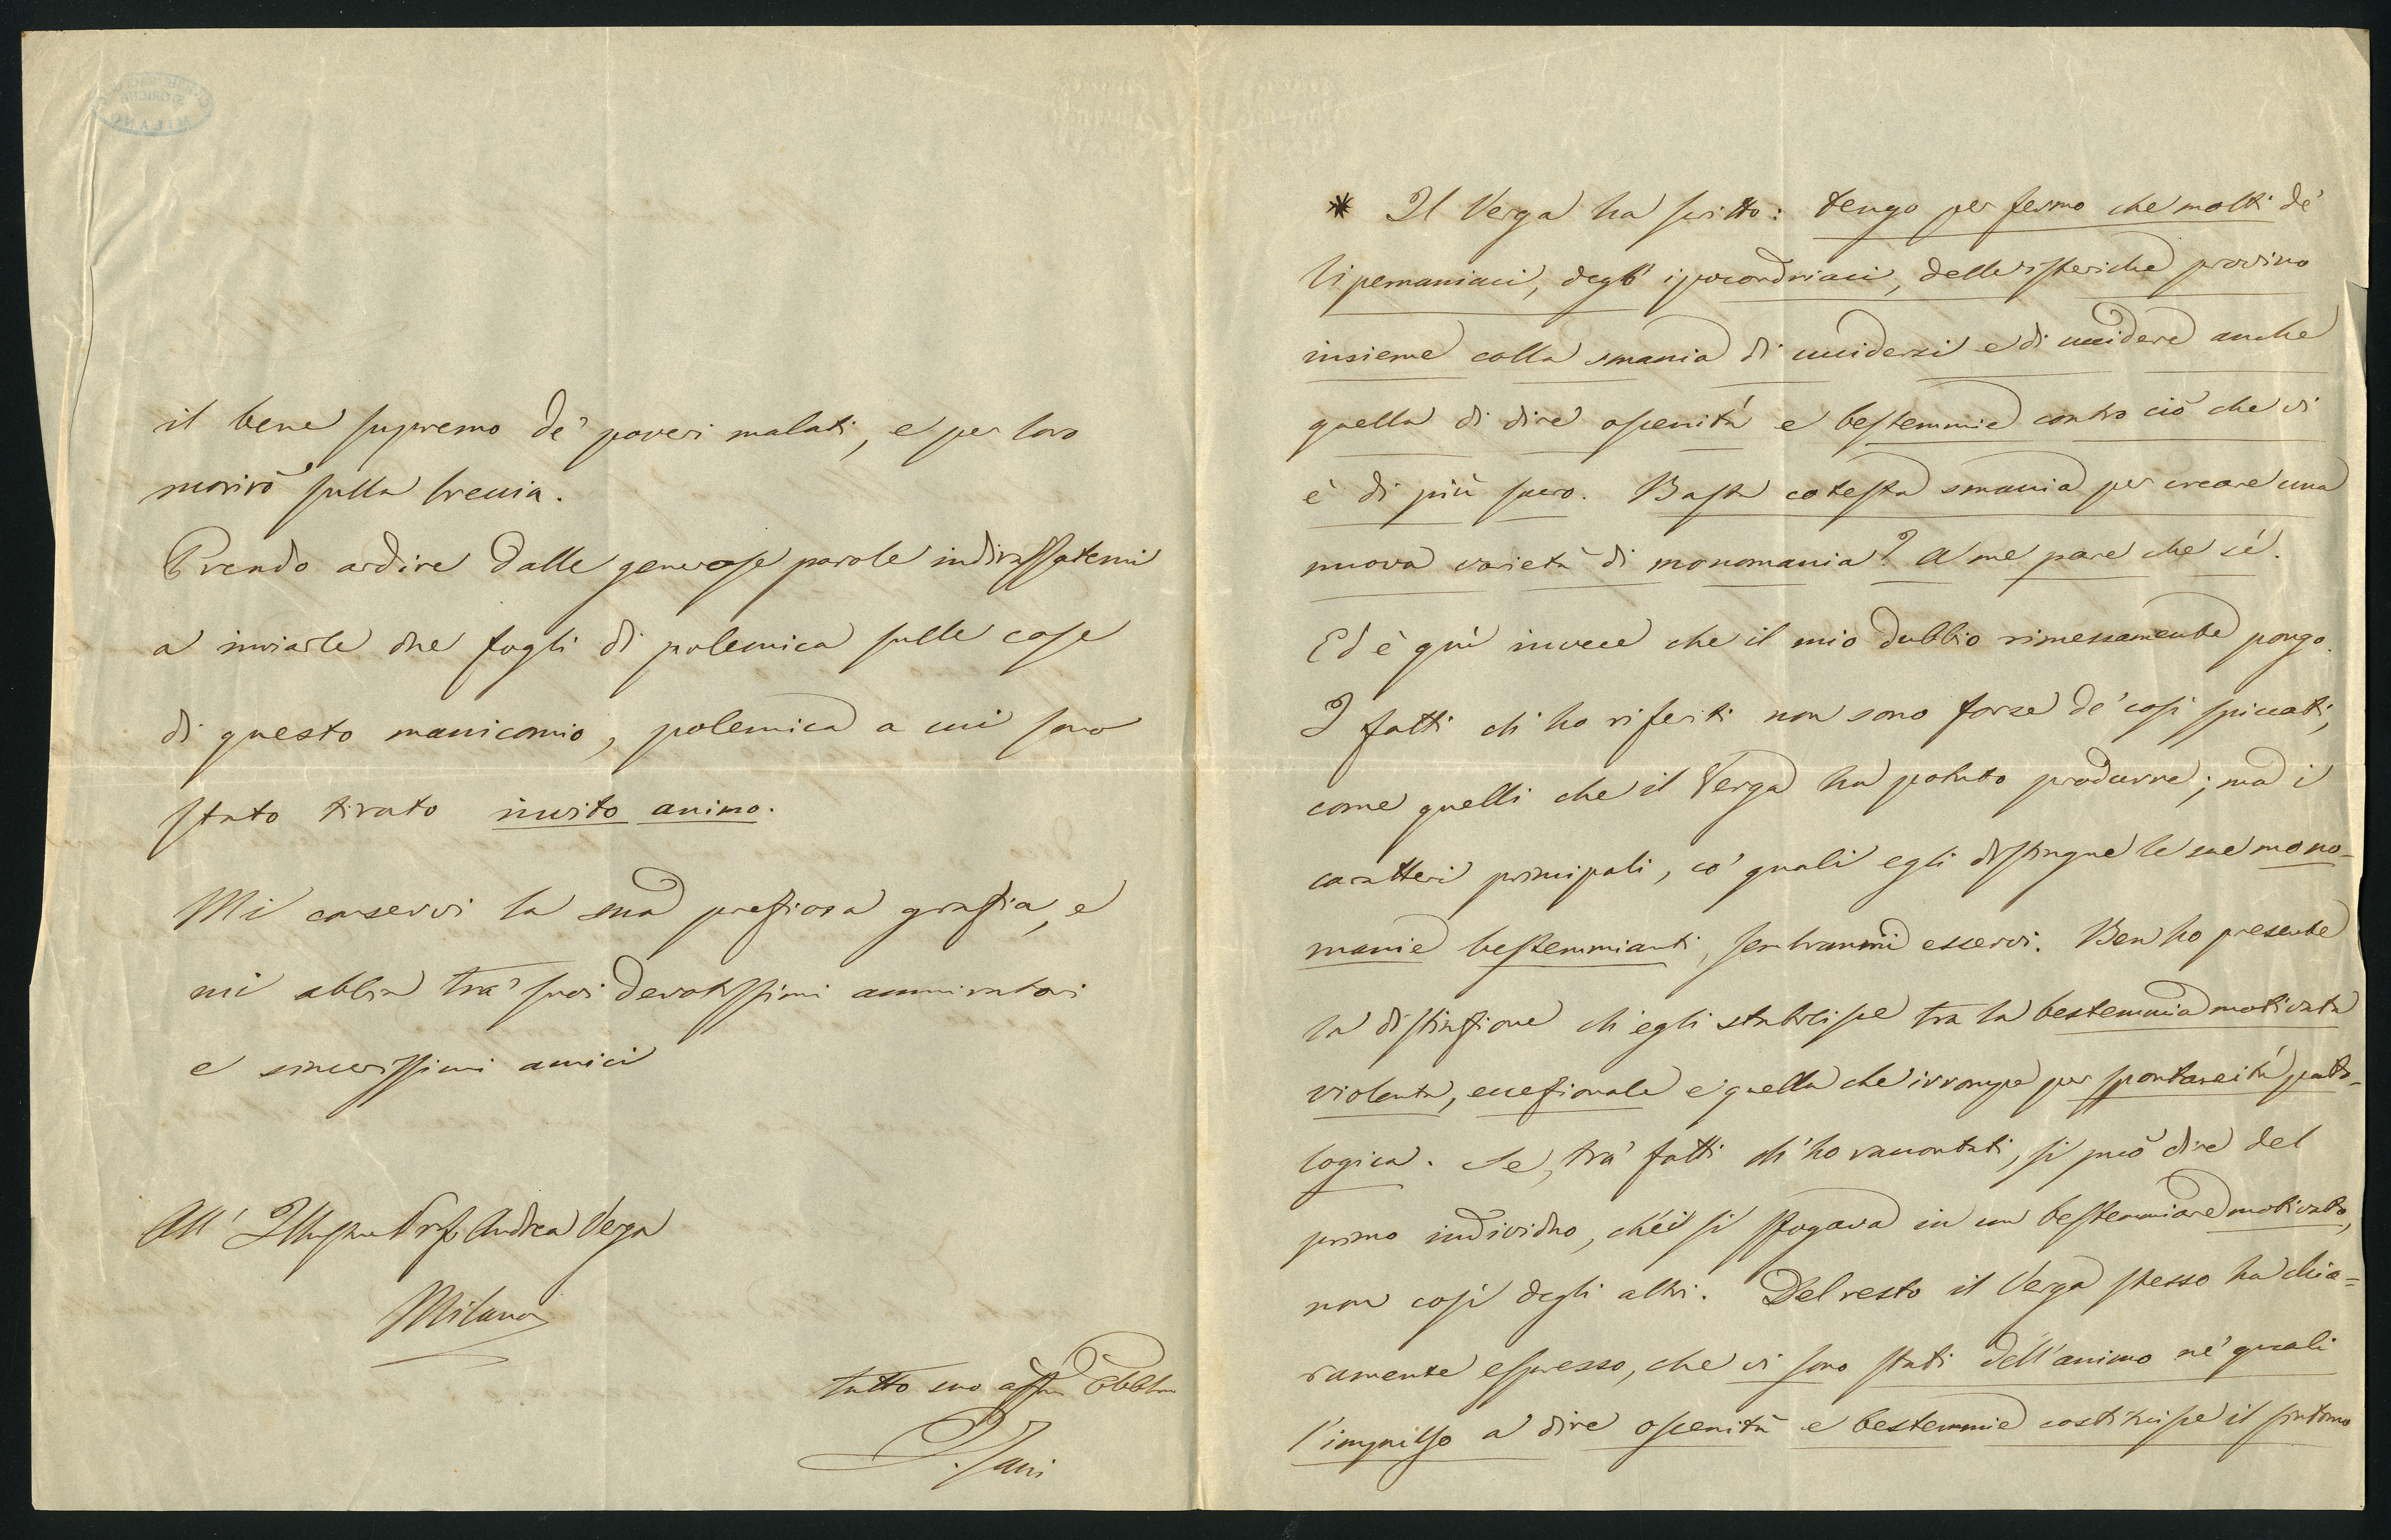 il bene supremo de' poveri malati, e per loro
morirò sulla breccia.
Prendo ardire dalle generose parole indirizzatemi
a inviarle due fogli di polemica sulle cose
di questo manicomio, polemica a cui sono
stato tirato invito animo.
Mi conservi la sua preziosa grazia, e
mi abbia tra' suoi devotissimi ammiratori
e sincerissimi amici
All' Illustre Prof. Andrea Verga
Milano
tutto suo affmo Obblmo
* Il Verga ha scritto: tengo per fermo che molti de'
lipemaniaci, degl' ipocondriaci, delle isteriche provino
insieme colla smania di uccidersi e di uccidere anche
quella di dire oscenità e bestemmie contro ciò che vi
è di più sacro. Basta cotesta smania per creare una
nuova varietà di monomania? A me pare che sé.
Ed è quì invece che il mio dubbio rimessamente pongo.
I fatti ch'ho riferiti non sono forse de' così spiccati,
come quelli che il Verga ha potuto produrre; ma i
caratteri principali, co' quali egli distingue le sue mono-
manie bestemmianti, sembranmi esservi. Ben ho presente
la distinzione ch'egli stabilisce tra la bestemmia motivata
violenta, eccezionale e quella che irrompe per spontaneità pato-
logica. Se, tra' fatti ch'ho raccontati, si può dire del
primo individuo, ch'ei si sfogava in un bestemmiare motivato,
non così degli altri. Del resto il Verga stesso ha chia=
ramente espresso, che vi sono stati dell'animo ne' quali
l'impulso a dire oscenità e bestemmie costituisce il sintomo
MILANO